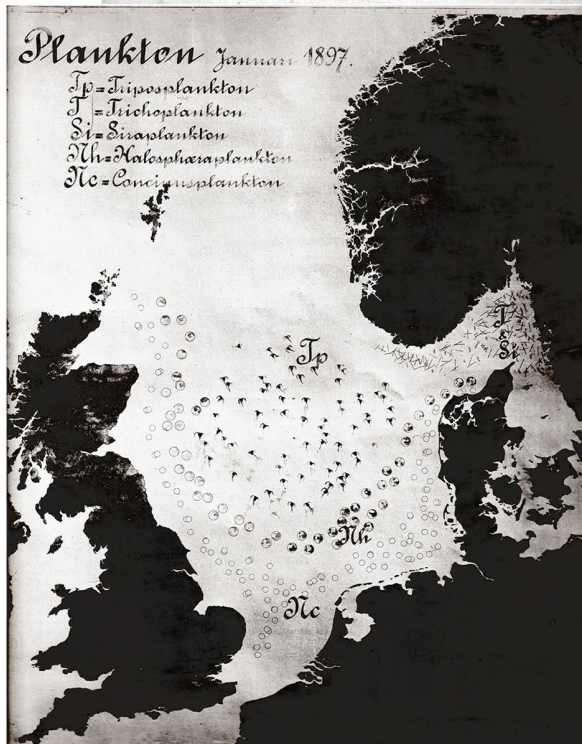 Plankton Januari 1897.
Tp=Triposplankton
T=Trichoplankton
Si=Siraplankton
Nh=Halosphæraplankton
Nc=Concinnusplankton
Tp
T
&
Si
Nh
Nc